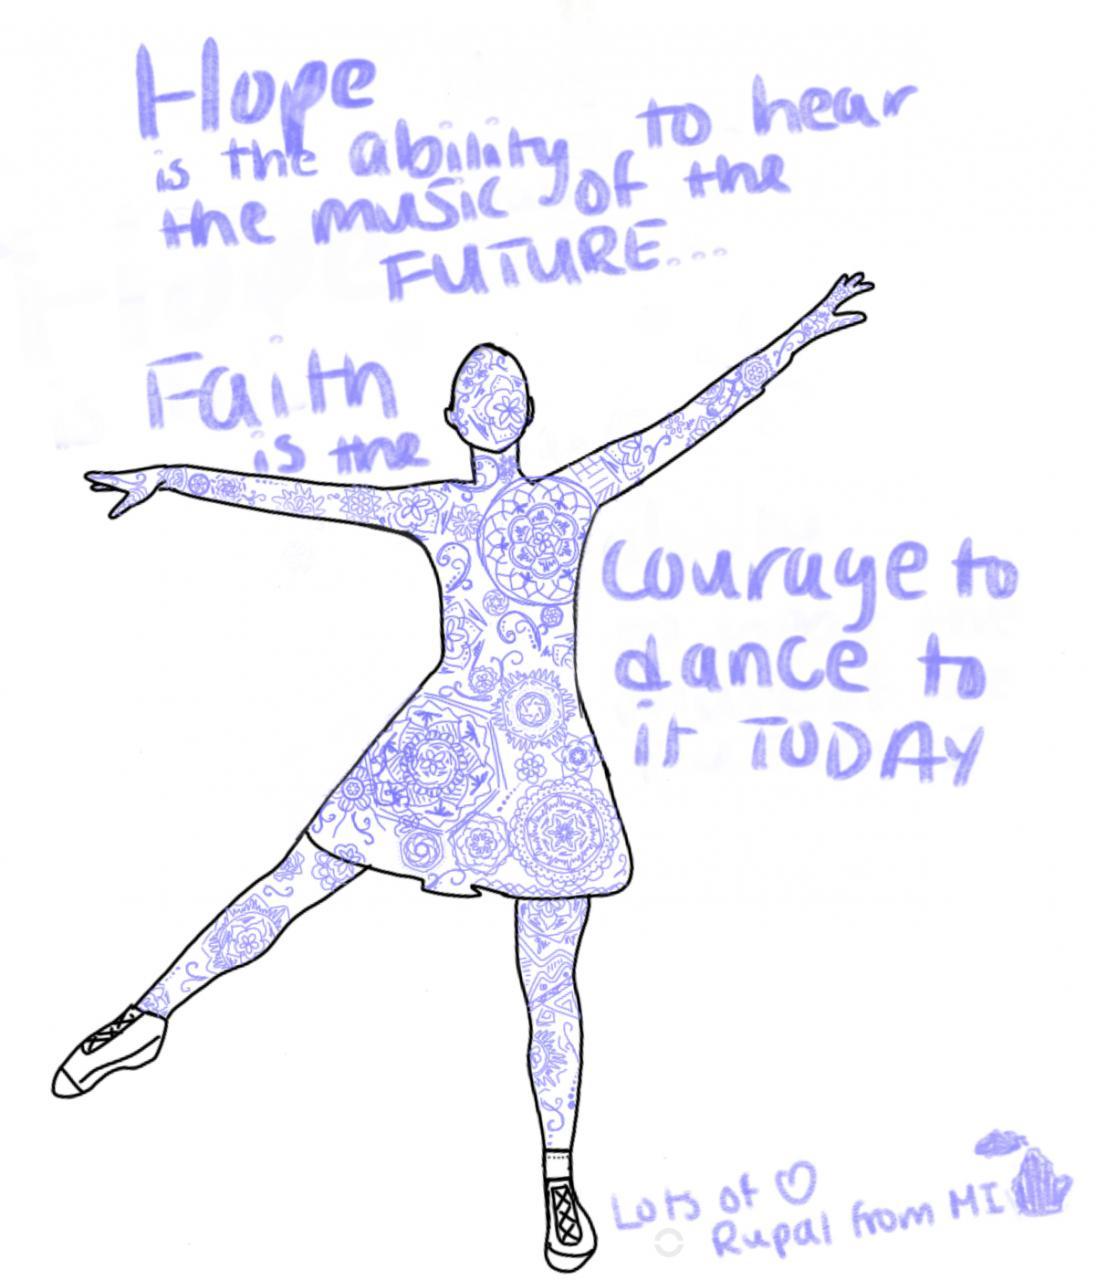 Hope
is the ability to hear
the music of the
FUTURE...
Faith
is the
courage to
dance to
it TODAY
Lots of ♡
Rupal from MI